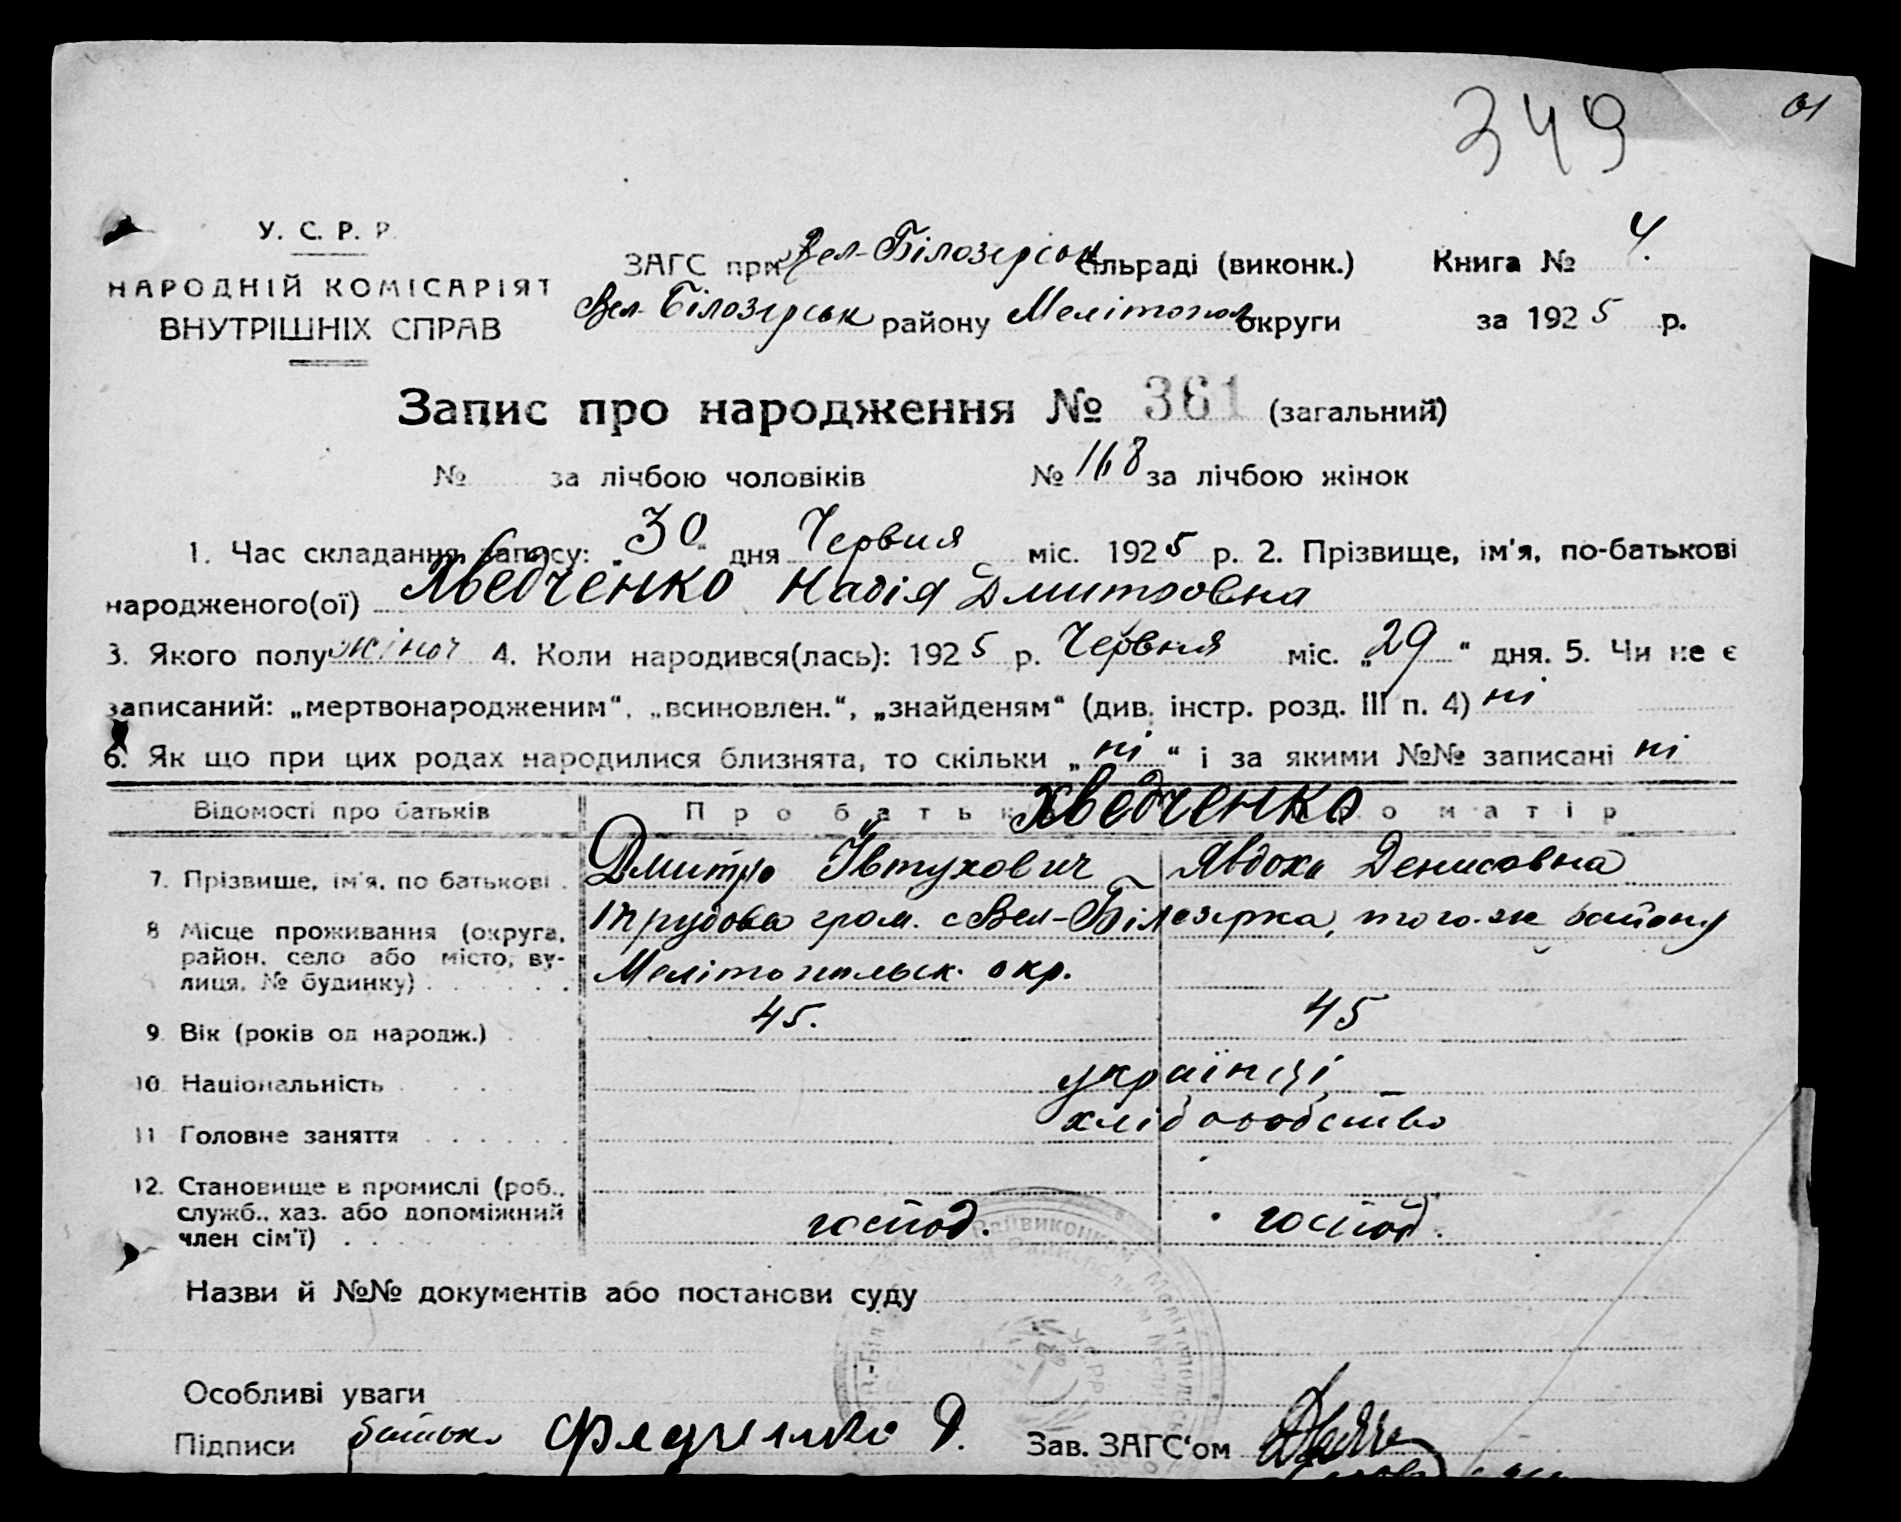 349
У. С. Р. Р.
НАРОДНІЙ КОМІСАРІЯТ
ВНУТРІШНІХ СПРАВ
ЗАГС при Вел-Білозерськ сільраді (виконк.) Книга № 4.
Вел-Білозерськ району Мелітопол округи за 1925 р.
Запис про народження № 361 (загальний)
№ за лічбою чоловіків № 168 за лічбою жінок
1. Час складання запису: „30“ дня Червня міс. 1925 р. 2. Прізвище, ім'я, по-батькові
народженого(ої) Хведченко Надія Дмитровна
3. Якого полу жіноч 4. Коли народився(лась): 1925 р. Червня міс. „29“ дня. 5. Чи не є
записаний: „мертвонародженим“, „всиновлен.“, „знайденям“ (див. інстр. розд. III п. 4) ні
6. Як що при цих родах народилися близнята, то скільки „ні“ і за якими №№ записані ні
Відомості про батьків Про батьк Хведченко о матір
7. Прізвище, ім'я, по батькові . Дмитро Ївтухович Явдоха Денисовна
8 Місце проживання (округа, район, село або місто, вулиця, № будинку) Трудова гром. с Вел-Білозерка, того-ж району
Мелітопольськ. окр.
9 Вік (років од народж.) 45. 45
10. Національність українці
11 Головне заняття хліборобство
12. Становище в промислі (роб., служб., хаз. або допоміжний член сім'ї) господ. господ.
Назви й №№ документів або постанови суду
Особливі уваги
Підписи батько Федченко Д. Зав. ЗАГС'ом